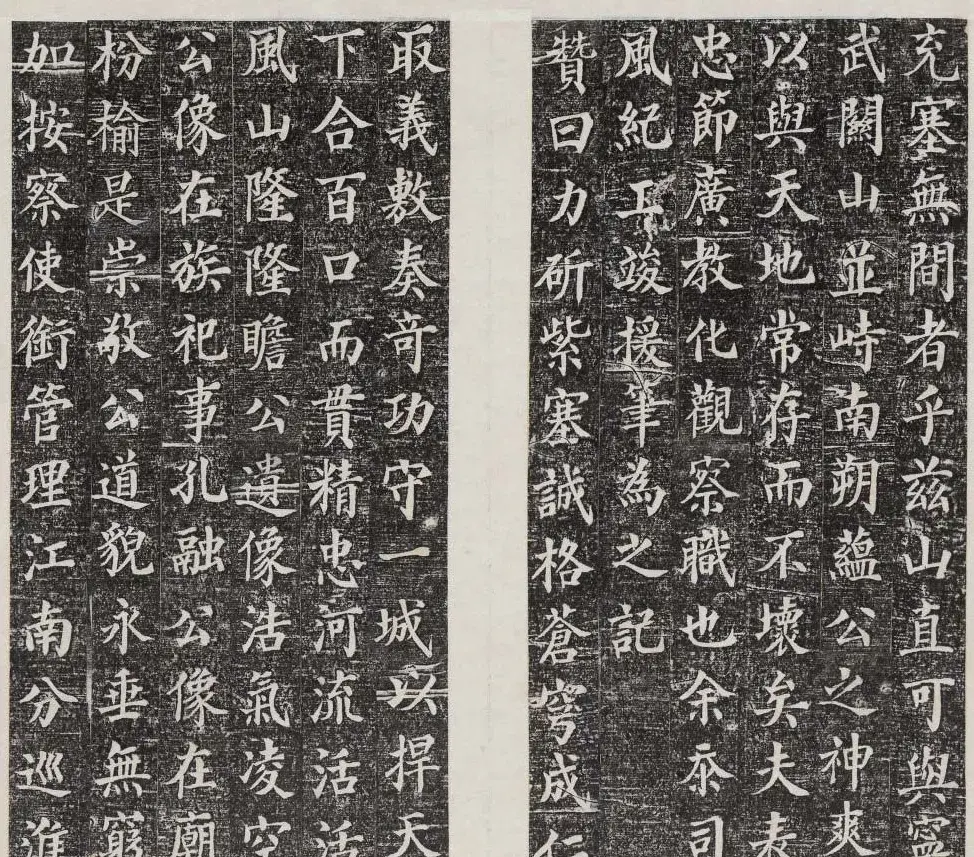 充塞無間者乎茲山直可與寧
武關山並峙南朔蘊公之神爽
以與天地常存而不壞矣夫表
忠節廣教化觀察職也余忝司
風紀工竣援筆為之記
贊曰力斫紫塞誠格蒼穹成仁
取義敷奏奇功守一城以捍天
下合百口而貫精忠河流活活
風山隆隆瞻公遺像浩氣凌空
公像在族祀事孔融公像在廟
枌榆是崇敬公道貌永垂無窮
加按察使銜管理江南分巡淮